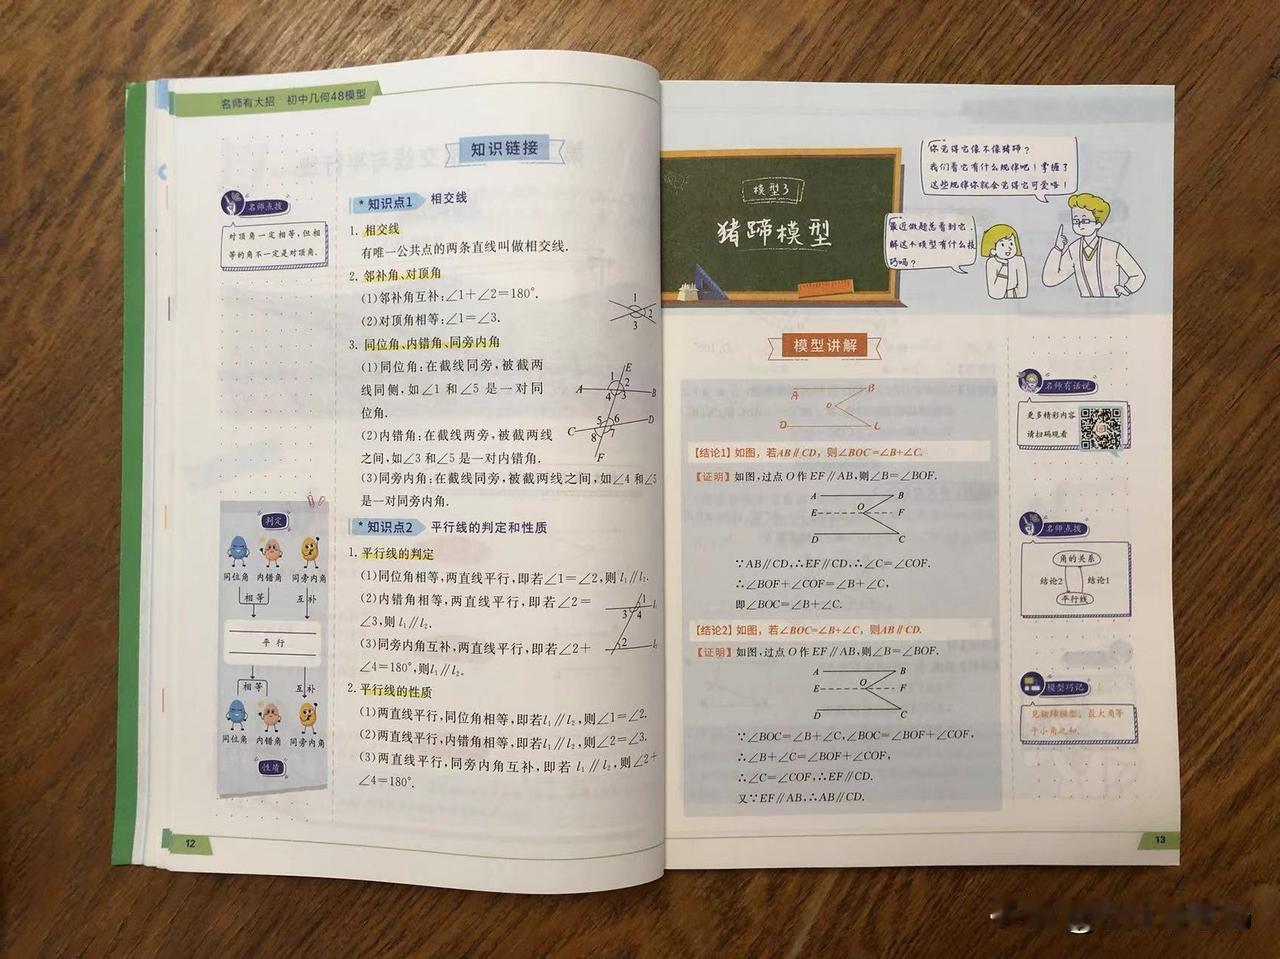 名师有大招 初中几何48模型
知识链接
名师点拨
对顶角一定相等,但相
等的角不一定是对顶角.
*知识点1 相交线
1. 相交线
有唯一公共点的两条直线叫做相交线.
2. 邻补角、对顶角
(1)邻补角互补:∠1+∠2=180°.
(2)对顶角相等:∠1=∠3.
1
2
3
3. 同位角、内错角、同旁内角
(1)同位角:在截线同旁,被截两
线同侧,如∠1和∠5是一对同
位角.
(2)内错角:在截线两旁,被截两线
之间,如∠3和∠5是一对内错角.
(3)同旁内角:在截线同旁,被截两线之间,如∠4和∠5
是一对同旁内角.
E
1 2
A 4 3 B
5 6 D
C 8 7
F
*知识点2 平行线的判定和性质
1. 平行线的判定
(1)同位角相等,两直线平行,即若∠1=∠2,则l₁∥l₂.
(2)内错角相等,两直线平行,即若∠2=
∠3,则l₁∥l₂.
(3)同旁内角互补,两直线平行,即若∠2+
∠4=180°,则l₁∥l₂.
1
3 4
2
2. 平行线的性质
(1)两直线平行,同位角相等,即若l₁∥l₂,则∠1=∠2.
(2)两直线平行,内错角相等,即若l₁∥l₂,则∠2=∠3.
(3)两直线平行,同旁内角互补,即若l₁∥l₂,则∠2+
∠4=180°.
判定
同位角 内错角 同旁内角
相等 互补
平行
相等 互补
同位角 内错角 同旁内角
性质
12
模型3
猪蹄模型
你觉得它像不像猪蹄?
我们看它有什么规律吧!掌握了
这些规律你就会觉得它可爱咯!
最近做题总看到它,
解这个模型有什么技
巧吗?
模型讲解
A B
O
D C
【结论1】如图,若AB∥CD,则∠BOC=∠B+∠C.
【证明】如图,过点O作EF∥AB,则∠B=∠BOF.
A B
E O F
D C
∵AB∥CD,∴EF∥CD,∴∠C=∠COF.
∴∠BOF+∠COF=∠B+∠C,
即∠BOC=∠B+∠C.
【结论2】如图,若∠BOC=∠B+∠C,则AB∥CD.
【证明】如图,过点O作EF∥AB,则∠B=∠BOF.
A B
E O F
D C
∵∠BOC=∠B+∠C,∠BOC=∠BOF+∠COF,
∴∠B+∠C=∠BOF+∠COF,
∴∠C=∠COF,∴EF∥CD.
又∵EF∥AB,∴AB∥CD.
名师有话说
更多精彩内容
请扫码观看
名师点拨
角的关系
结论2 结论1
平行线
模型巧记
见猪蹄模型,最大角等
于小角之和.
13